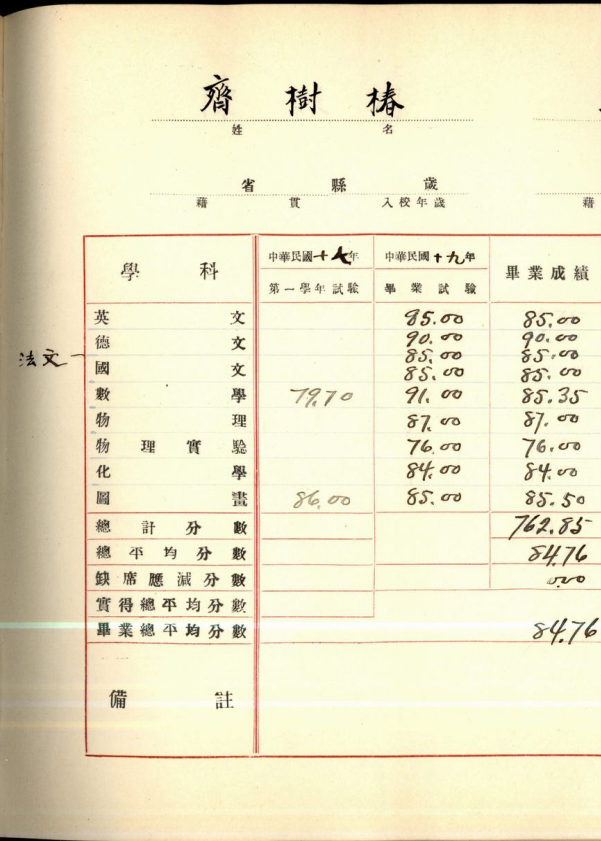 齊樹椿
姓 名
省 縣 歲
藉 貫 入校年歲 藉
學科 中華民國十七年 中華民國十九年 畢業成績
第一學年試驗 畢業試驗
英文 85.00 85.00
德文 90.00 90.00
法文 85.00 85.00
國文 85.00 85.00
數學 79.70 91.00 85.35
物理 87.00 87.00
物理實驗 76.00 76.00
化學 84.00 84.00
圖畫 86.00 85.00 85.50
總計分數 762.85
總平均分數 84.76
缺席應減分數 0.00
實得總平均分數
畢業總平均分數 84.76
備註